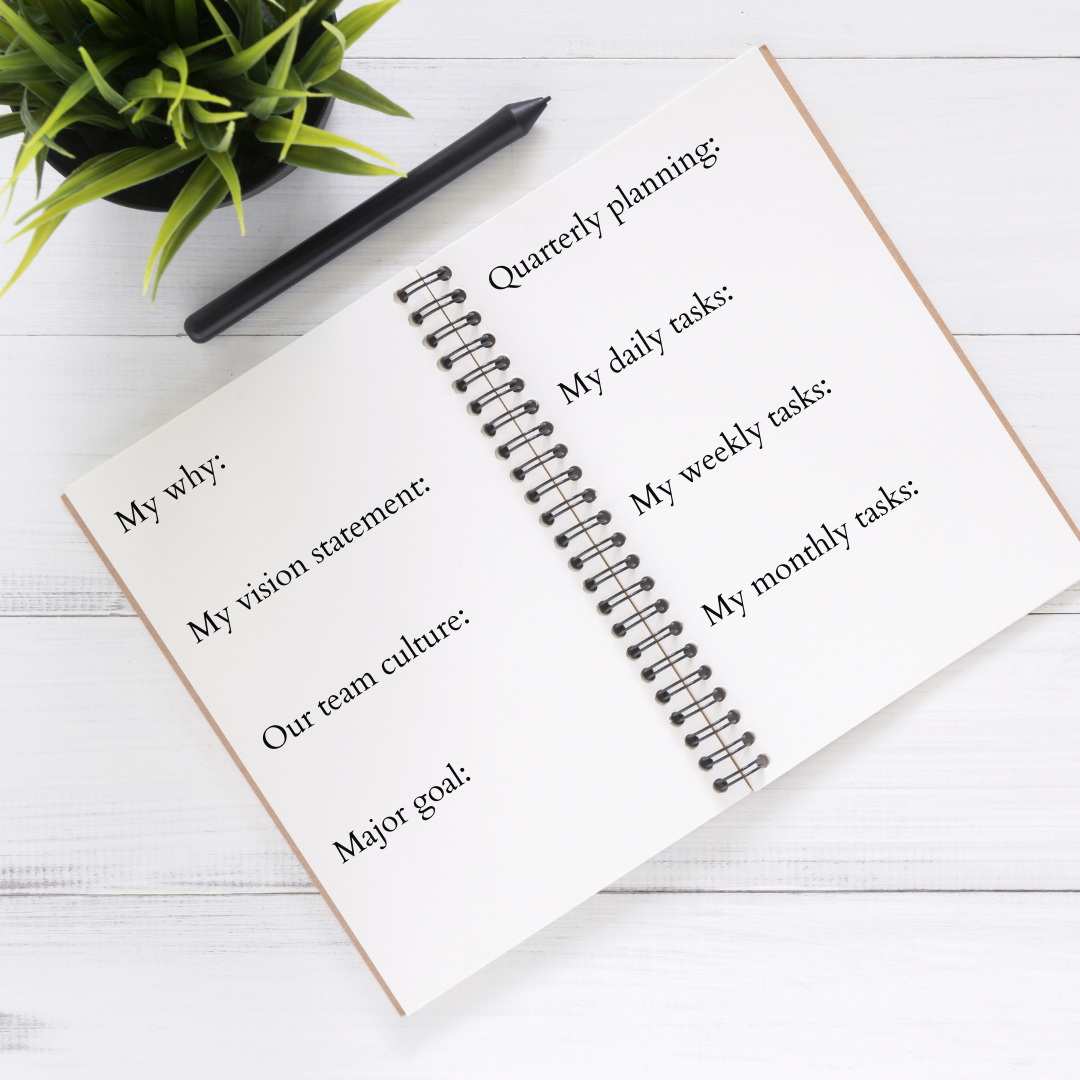 My why:
My vision statement:
Our team culture:
Major goal:
Quarterly planning:
My daily tasks:
My weekly tasks:
My monthly tasks: